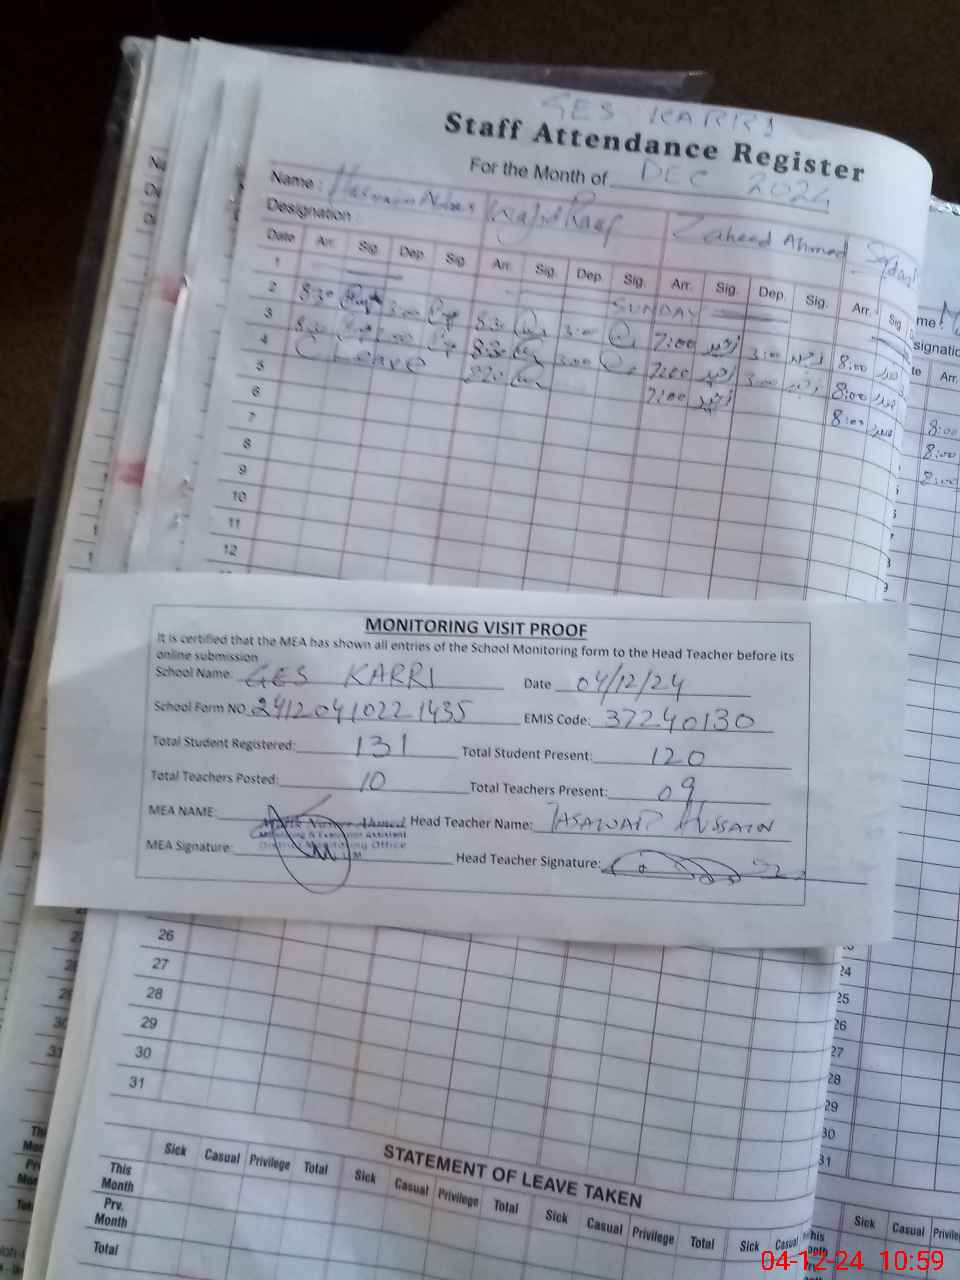 GES KARRI
Staff Attendance Register
For the Month of DEC 2024
Name : Zaheed Ahmed
Designation :
Date Arr. Sig. Dep. Sig. Arr. Sig. Dep. Sig. Arr. Sig. Dep. Sig. Arr. Sig.
1 SUNDAY
2 8:30 3:00 8:30 3:00 7:00 زاہد 3:00 زاہد 8:00
3 8:30 3:00 8:30 3:00 7:00 زاہد 3:00 زاہد 8:00
4 C Leave 8:30 7:00 زاہد 8:00
5
6
7
8
9
10
11
12
me:
signatio
te Arr.
8:00
8:00
8:00
MONITORING VISIT PROOF
It is certified that the MEA has shown all entries of the School Monitoring form to the Head Teacher before its
online submission
School Name: GES KARRI Date 04/12/24
School Form NO 24120410221435 EMIS Code: 37240130
Total Student Registered: 131 Total Student Present: 120
Total Teachers Posted: 10 Total Teachers Present: 09
MEA NAME: Ahmed Head Teacher Name: TASAWAR HUSSAIN
Monitoring & Evaluation Assistant
District Monitoring Office
MEA Signature: Head Teacher Signature:
26
27
28
29
30
31
24
25
26
27
28
29
30
31
STATEMENT OF LEAVE TAKEN
Sick Casual Privilege Total Sick Casual Privilege Total Sick Casual Privilege Total Sick Casual
This Month
Prv. Month
Total
Sick Casual Privile
04-12-24 10:59